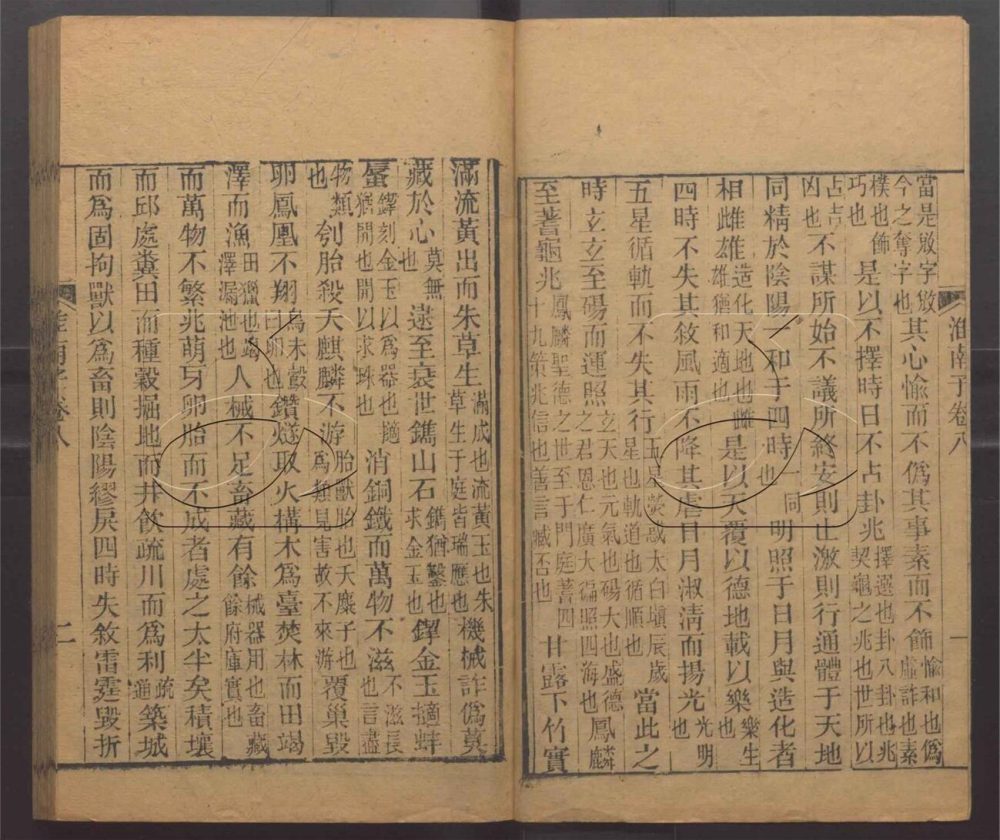 當是敚字敚今之奪字也其心愉而不僞其事素而不飾愉和也僞虛詐也素
樸也飾巧也是以不擇時日不占卦兆擇選也卦八卦也兆契龜之兆也世所以
占吉凶也不謀所始不議所終安則止激則行通體于天地
同精於陰陽一和于四時一同也明照于日月與造化者
相雌雄造化天地也雌雄猶和適也是以天覆以德地載以樂樂生也
四時不失其敘風雨不降其虐日月淑清而揚光光明也
五星循軌而不失其行五星熒惑太白塡辰歲星也軌道也循順也當此之
時玄玄至碭而運照玄天也元氣也碭大也盛德之君恩仁廣大徧照四海也鳳麟
至蓍龜兆鳳麟聖德之世至于門庭蓍四十九策兆信也善言臧否也甘露下竹實
滿流黃出而朱草生滿成也流黃玉也朱草生于庭皆瑞應也機械詐僞莫
藏於心莫無也逮至衰世鐫山石鐫猶鑿也求金玉也鍥金玉擿蚌
蜃鍥刻金玉以爲器也擿猶開也開以求珠也消銅鐵而萬物不滋不滋長也言盡
物類也刳胎殺夭麒麟不游胎獸胎也夭麋子也爲類見害故不來游覆巢毀
卵鳳凰不翔鳥未鷇曰卵也鑽燧取火構木爲臺焚林而田竭
澤而漁田獵也竭澤漏池也人械不足畜藏有餘械器用也畜藏餘府庫實也
而萬物不繁兆萌牙卵胎而不成者處之太半矣積壤
而邱處糞田而種穀掘地而井飮疏川而爲利疏通築城
而爲固拘獸以爲畜則陰陽繆戾四時失敘雷霆毀折
淮南子卷八
一
淮南子卷八
二